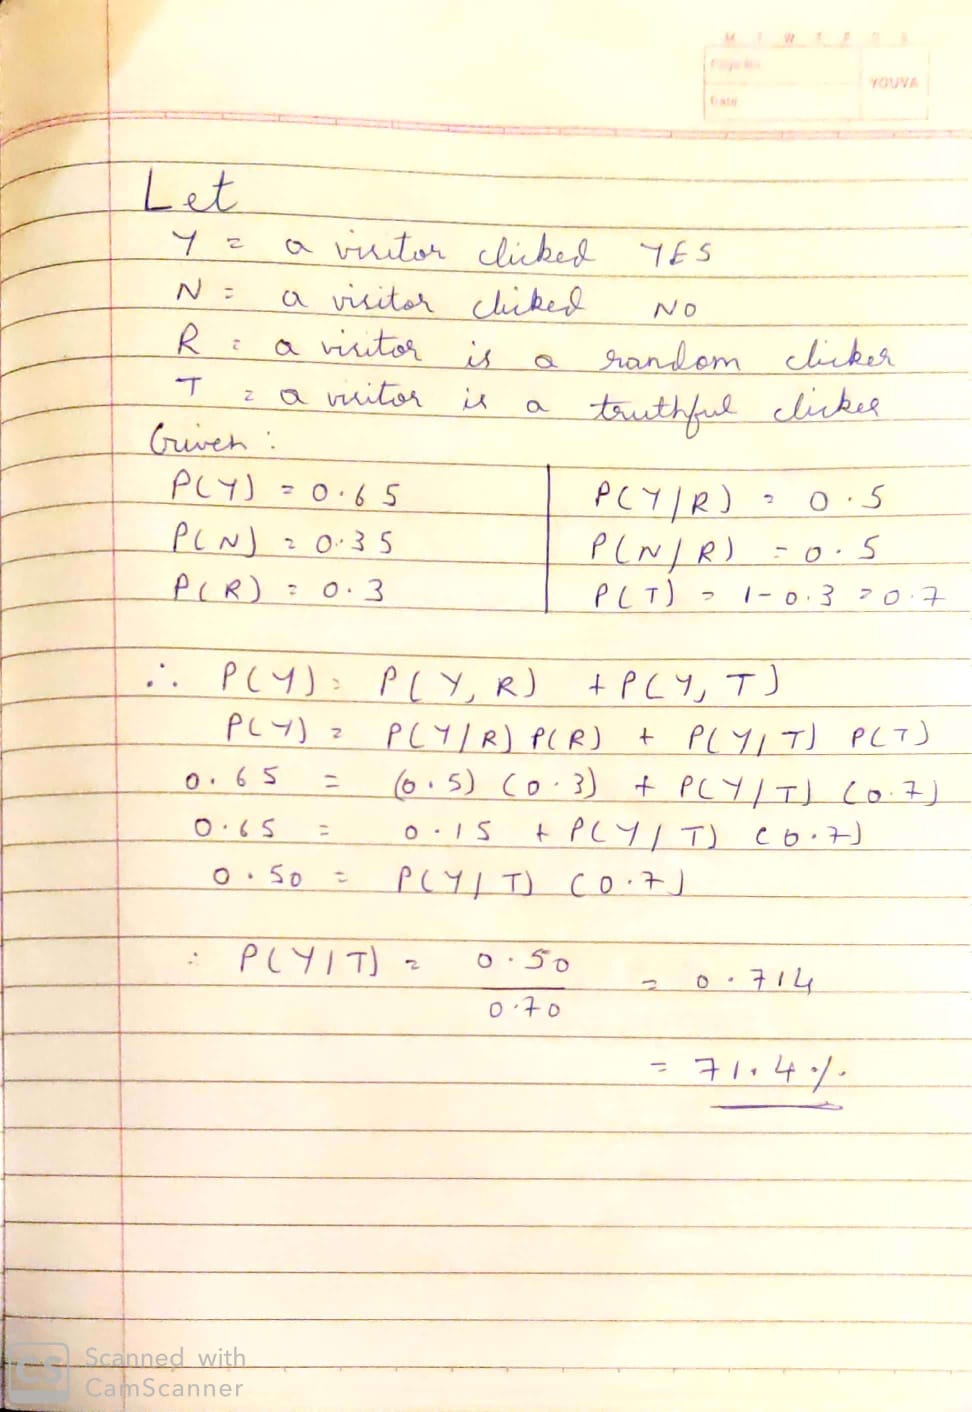 M T W T F S S
Page No.
YOUVA
Date
Let
Y = a visitor clicked YES
N = a visitor clicked NO
R = a visitor is a random clicker
T = a visitor is a truthful clicker
Given :
P(Y) = 0.65
P(N) = 0.35
P(R) = 0.3
P(Y/R) = 0.5
P(N/R) = 0.5
P(T) = 1-0.3 = 0.7
∴ P(Y) = P(Y, R) + P(Y, T)
P(Y) = P(Y/R) P(R) + P(Y/T) P(T)
0.65 = (0.5) (0.3) + P(Y/T) (0.7)
0.65 = 0.15 + P(Y/T) (0.7)
0.50 = P(Y/T) (0.7)
∴ P(Y/T) = 0.50 / 0.70 = 0.714
= 71.4%
CS Scanned with
CamScanner